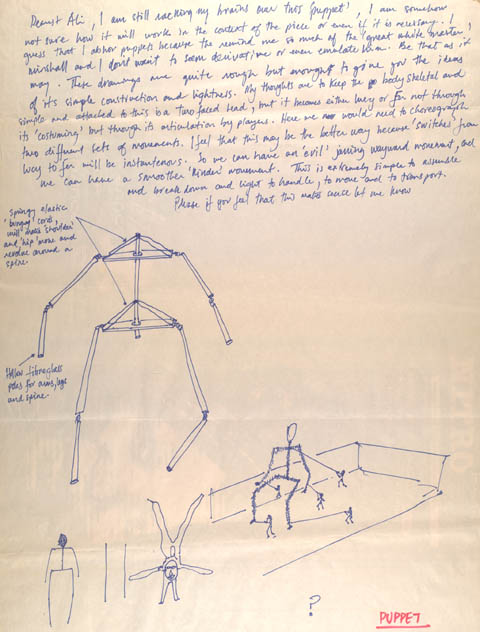 Dearest Ali, I am still racking my brains over this 'puppet', I am somehow
not sure how it will work in the context of the piece or even if it is necessary. I
guess that I abhor puppets because the remind me so much of the 'great white master',
minshall and I dont want to seem derivative or even emulate him. Be that as it
may. These drawings are quite rough but enough to give you the ideas
of its simple construction and lightness. My thoughts are to keep the body skeletal and
simple and attached to this is a two faced head, but it becomes either lucy or fer not through
its 'costuming' but through its articulation by players. Here we would need to choreograph
two different sets of movements. I feel that this may be the better way because 'switches' from
lucy to fer will be instantaneous. So we can have an 'evil' jarring wayward movement, and
we can have a smoother 'kinder' movement. This is extremely simple to assemble
and break down and light to handle, to move and to transport.
Please if you feel that this makes sense let me know
springy elastic
'bungy' cords
will make 'shoulder'
and 'hip' move and
revolve around a
spine.
Hollow fibreglass
poles for arms, legs
and spine.
?
PUPPET